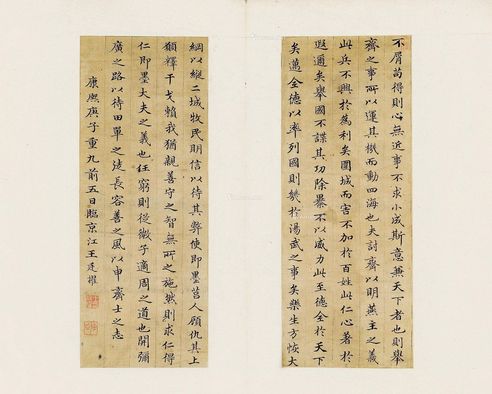 不屑苟得則心無近事不求小成斯意兼天下者也則舉
齊之事所以運其機而動四海也夫討齊以明燕主之義
此兵不興於為利矣圍城而害不加於百姓此仁心著於
遐邇矣舉國不謀其功除暴不以威力此至德全於天下
矣邁全德以率列國則幾於湯武之事矣樂生方恢大
綱以縱二城牧民明信以待其弊使即墨莒人顧仇其上
願釋干戈賴我猶親善守之智無所之施然則求仁得
仁即墨大夫之義也任窮則從微子適周之道也開彌
廣之路以待田單之徒長容善之風以申齊士之志
康熙庚子重九前五日臨京江王廷